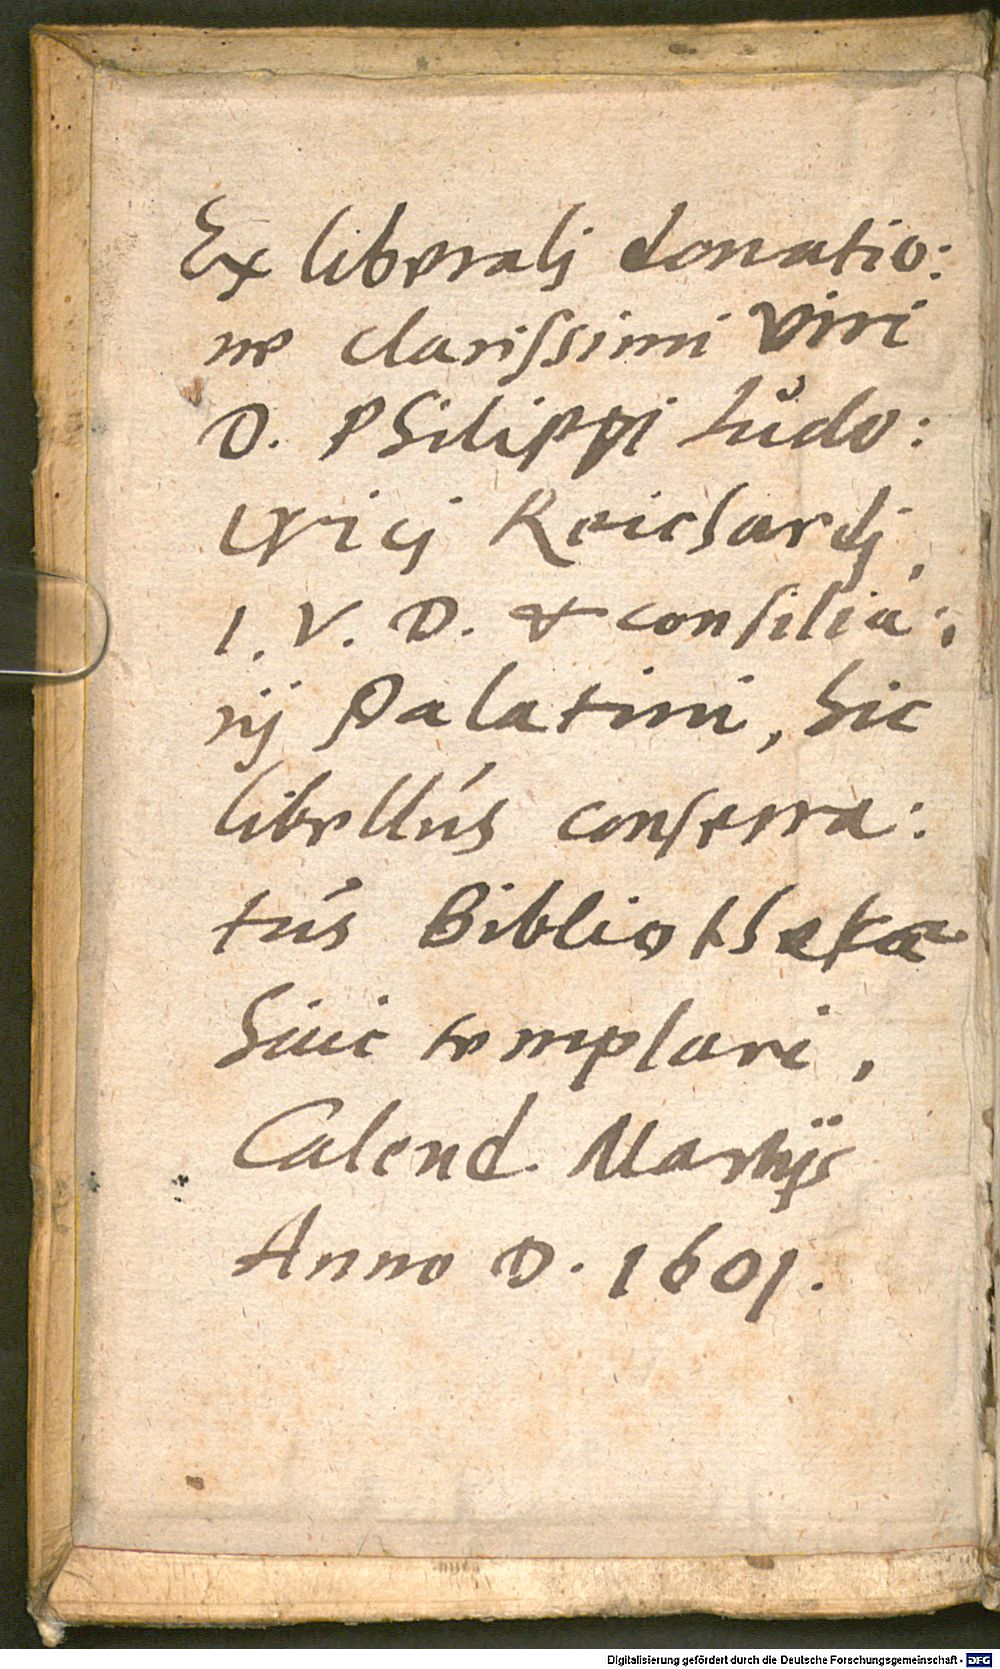 Ex liberalj donatio:
ne clarissimi viri
D. Philippi Ludo:
vicj Reichardj,
I. V. D. & consilia:
rij Palatini, hic
libellus conserva:
tus Bibliothekæ
huic templari,
Calend. Martijs
Anno D. 1601.
Digitalisierung gefördert durch die Deutsche Forschungsgemeinschaft - DFG